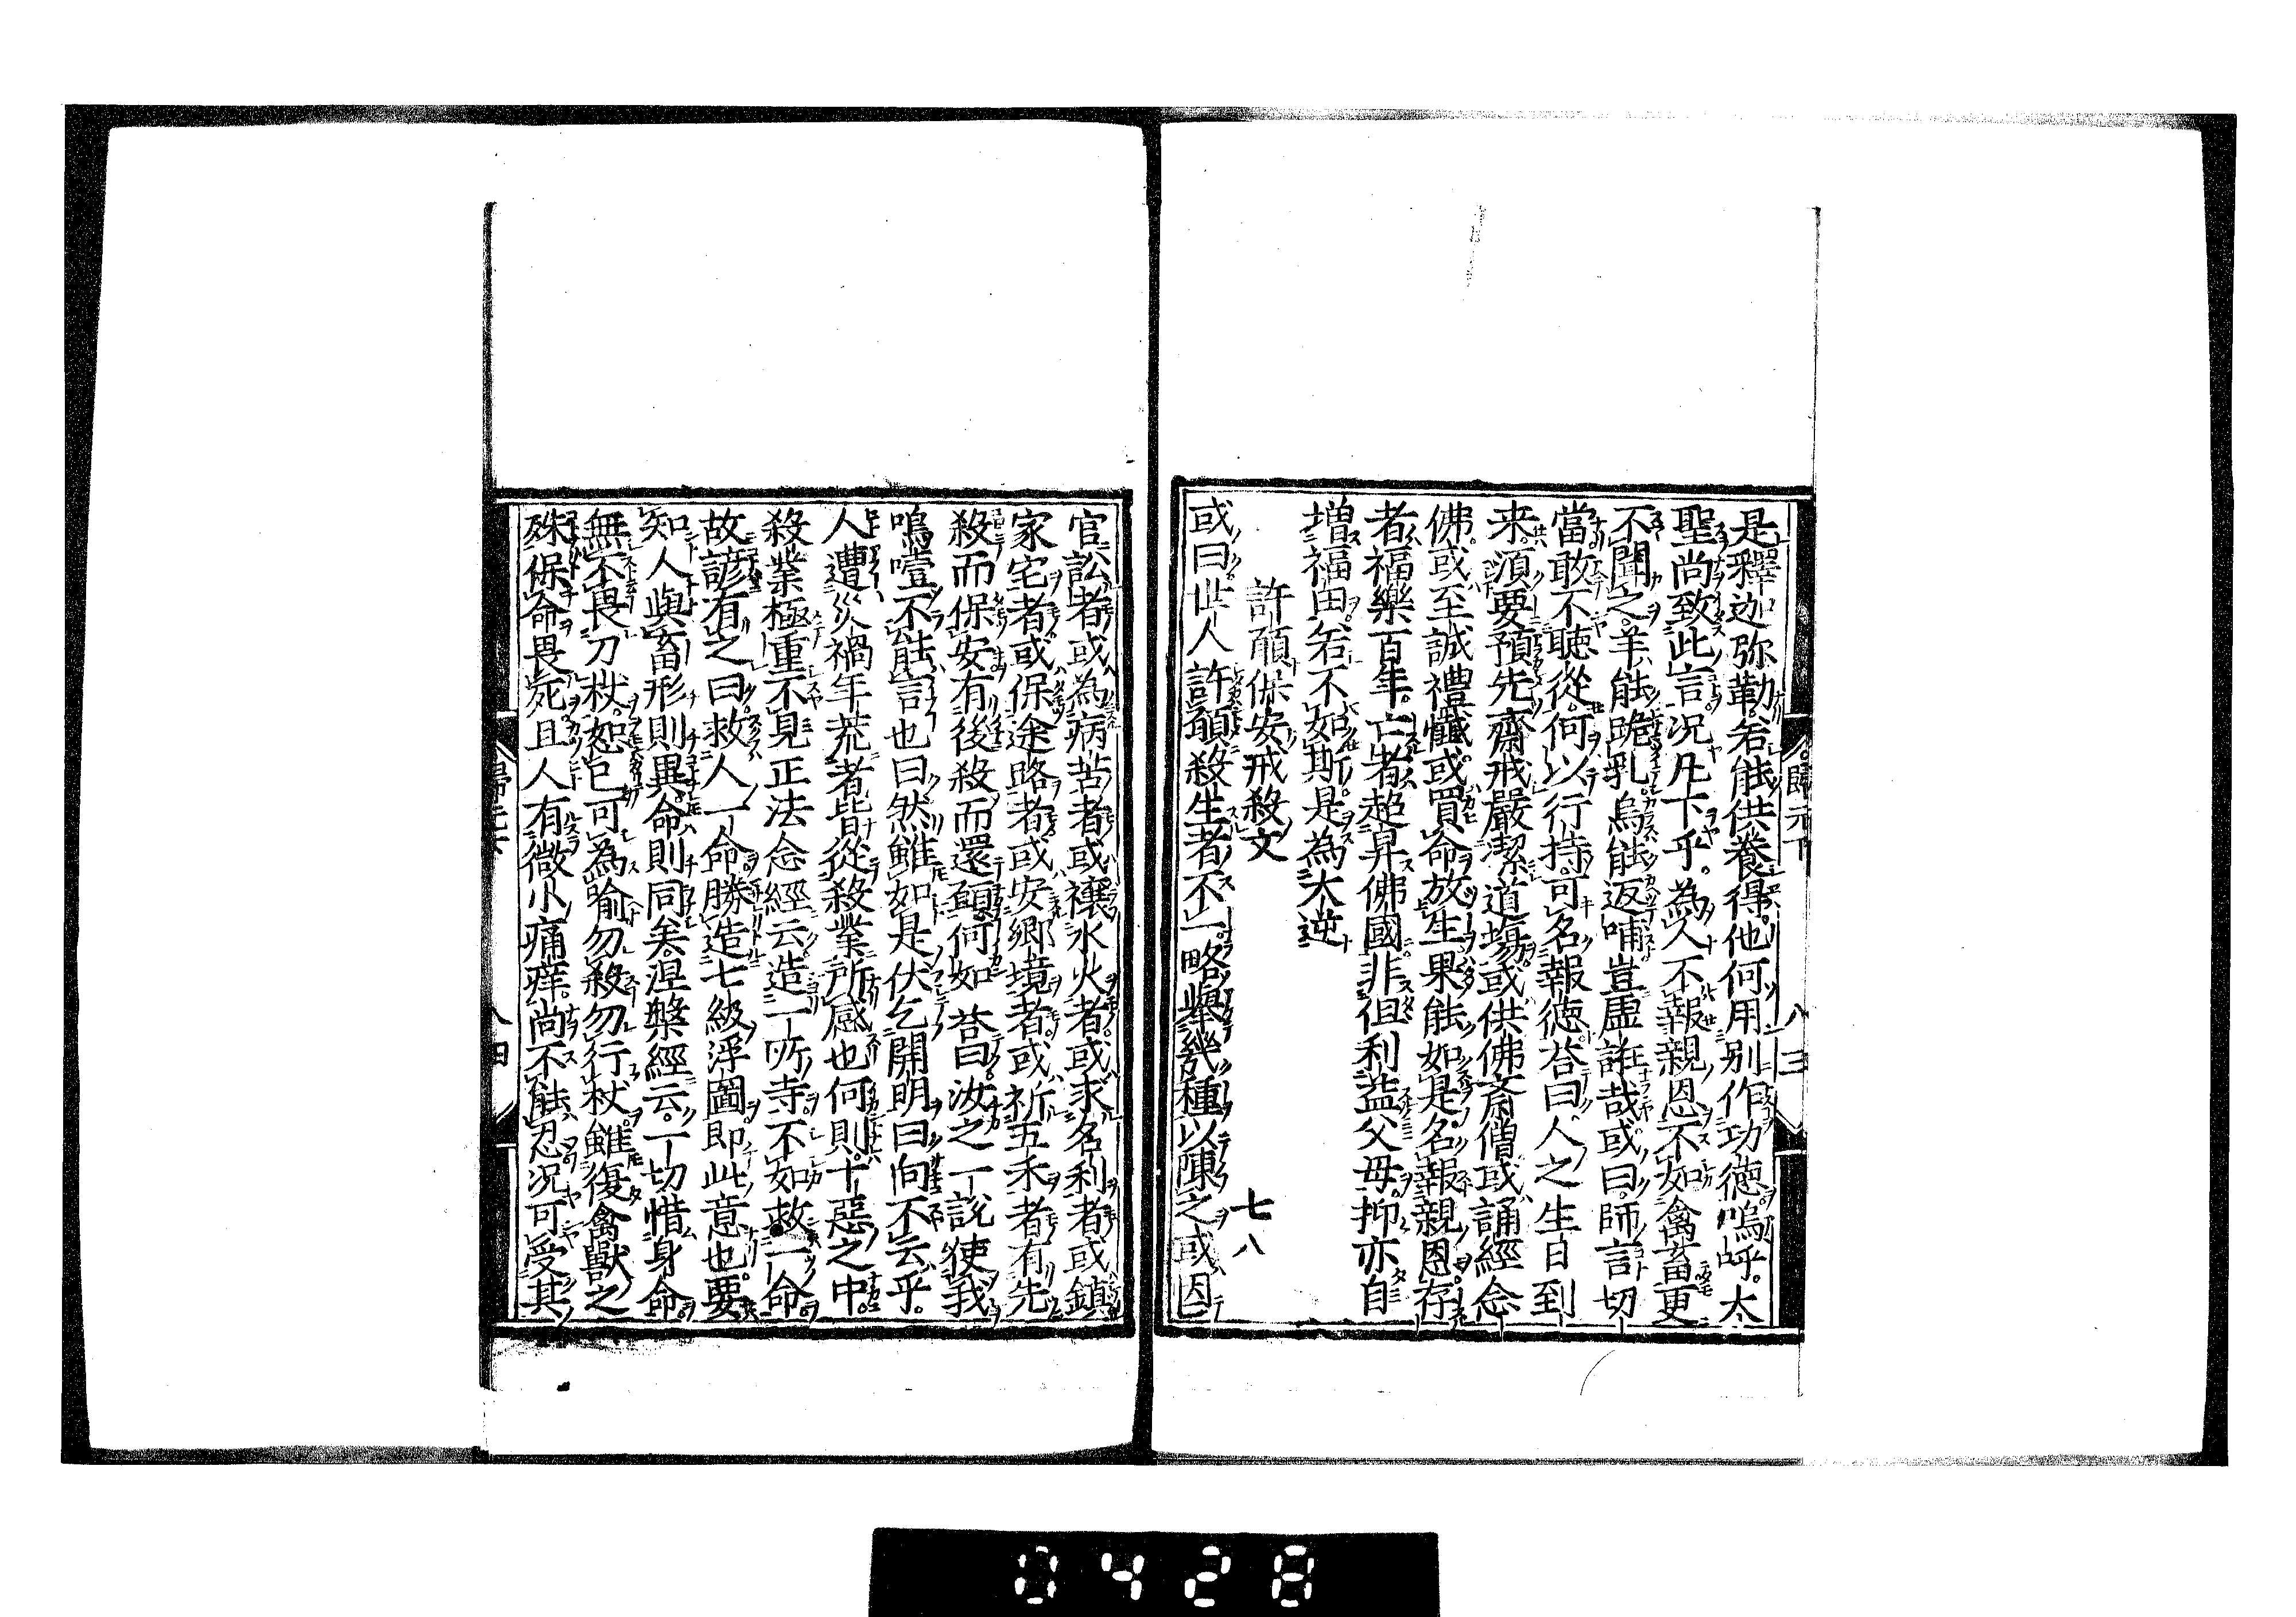 是釋迦弥勒若能供養得他何用别作功徳嗚呼太
聖尚致此言况凡下乎為人不報親恩不如禽畜更
不聞之羊能跪乳烏能返哺豈虚誑哉或曰師言切
當敢不聴從何以行持可名報徳荅曰人之生日到
来須要預先齋戒嚴潔道塲或供佛斎僧或誦經念
佛或至誠禮懺或買命放生果能如是名報親恩存
者福樂百年亡者超昇佛國非但利益父母抑亦自
増福田若不如斯是為大逆
許願保安戒殺文 七八
或曰世人許願殺生者不一略舉幾種以陳之或因
官訟者或為病苦者或禳水火者或求名利者或鎮
家宅者或保途路者或安郷境者或祈五禾者有先
殺而保安有後殺而還願何如荅曰汝之一說使我
嗚噎不能言也曰然雖如是伏乞開明曰向不云乎
人遭災禍年荒者皆從殺業所感也何則十惡之中
殺業極重不見正法念經云造一所寺不如救一命
故諺有之曰救人一命勝造七級浮圖即此意也要
知人與畜形則異命則同矣涅槃經云一切惜身命
無不畏刀杖恕已可為喻勿殺勿行杖雖復禽獸之
殊保命畏死且人有微小痛痒尚不能忍况可受其
歸元下 八三
八四
0428